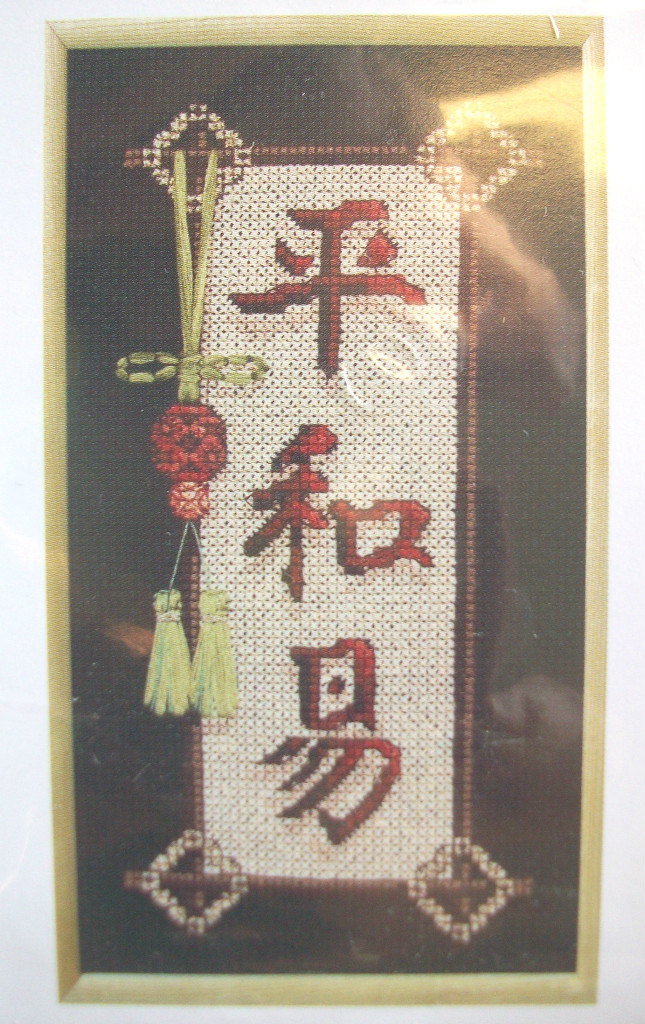 平
和
易